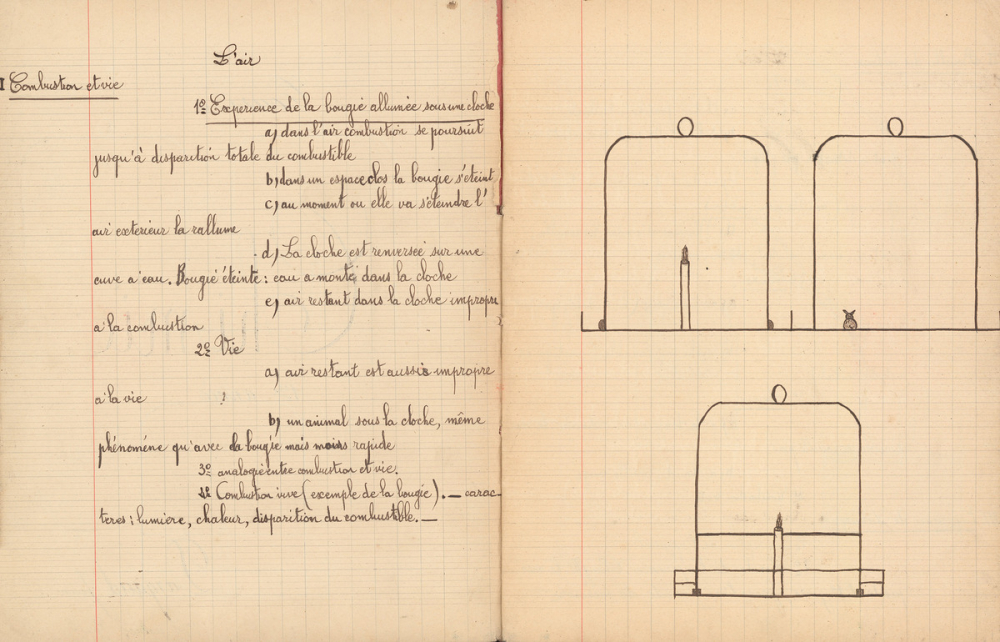 L'air
I Combustion et vie
1º Expérience de la bougie allumée sous une cloche
a) dans l'air combustion se poursuit
jusqu'à disparition totale du combustible
b) dans un espace clos la bougie s'éteint
c) au moment ou elle va s'éteindre l'
air extérieur la rallume
d) La cloche est renversée sur une
cuve a eau. Bougie éteinte : eau a monté dans la cloche
e) air restant dans la cloche impropre
a la combustion
2º Vie
a) air restant est aussi impropre
a la vie
b) un animal sous la cloche, même
phénomène qu'avec la bougie mais moins rapide
3º analogie entre combustion et vie.
4º Combustion vive (exemple de la bougie). — carac-
tères : lumière, chaleur, disparition du combustible. —